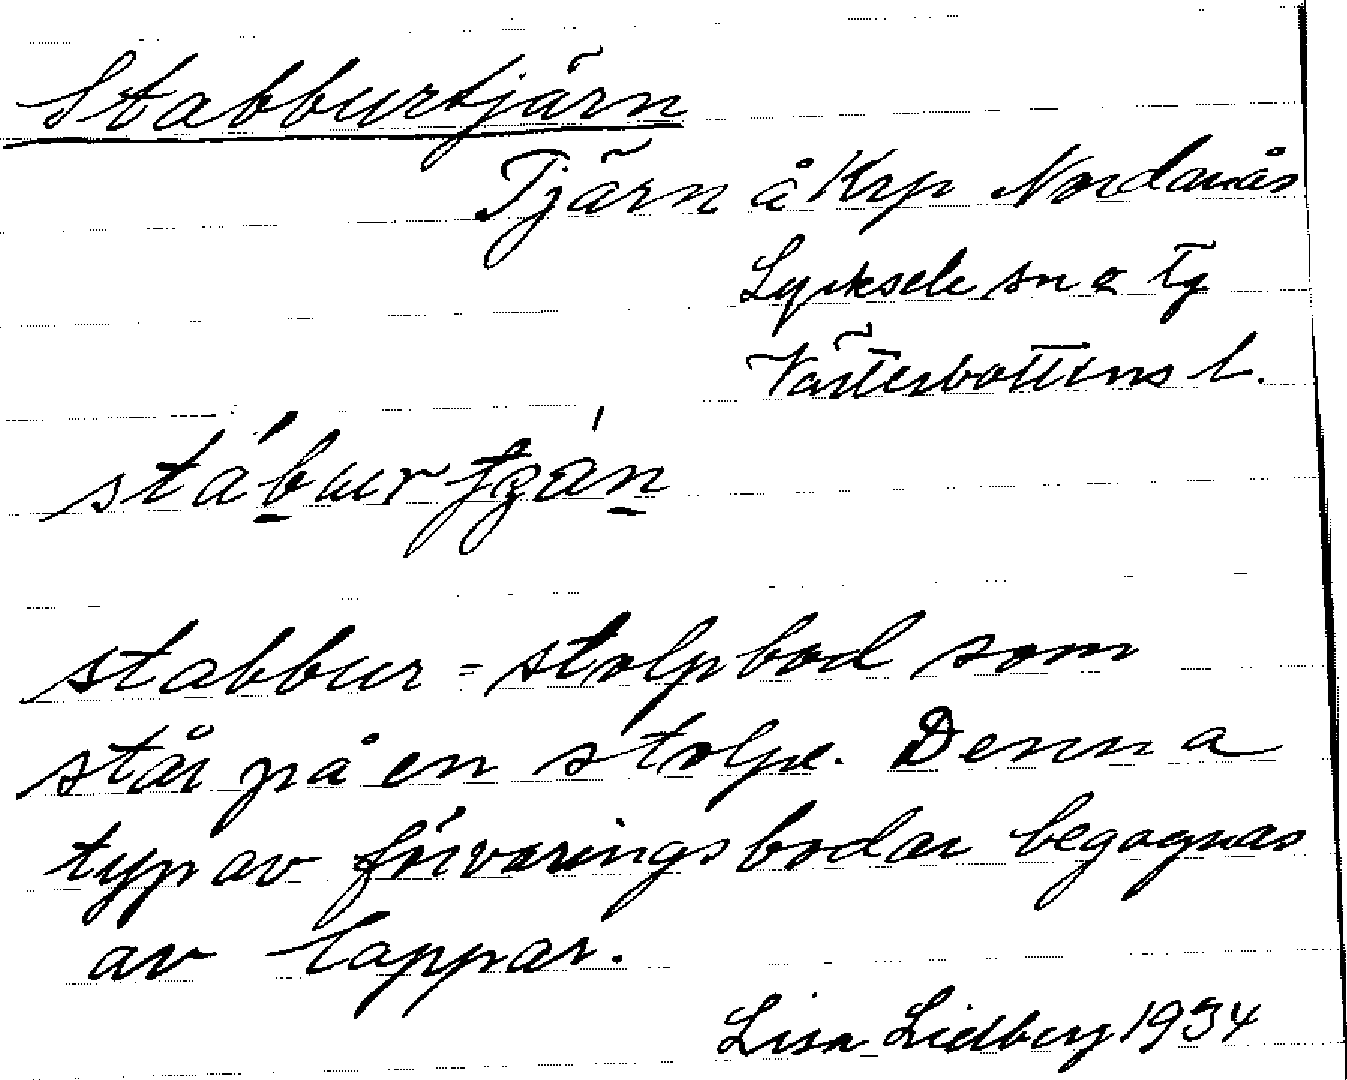 Stabburtjärn
Tjärn å Krp Nordanås
Lycksele sn o tg
Västerbottens l.
stabbur = stolpbod som
står på en stolpe. Denna
typ av förvaringsbodar begagnas
av lappar.
Lisa Lidberg 1934